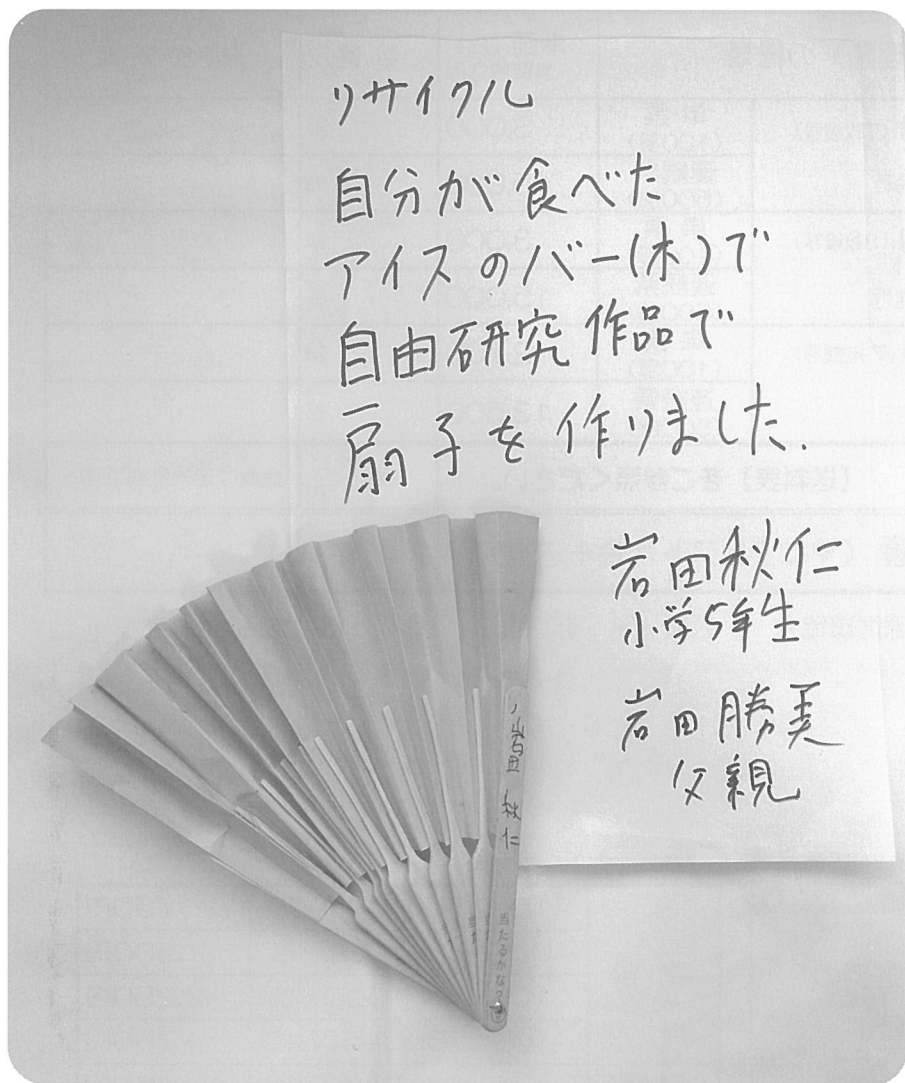 リサイクル
自分が食べた
アイスのバー(木)で
自由研究作品で
扇子を作りました.
岩田秋仁
小学5年生
岩田勝美
父親
岩田 秋仁
当たるかな?